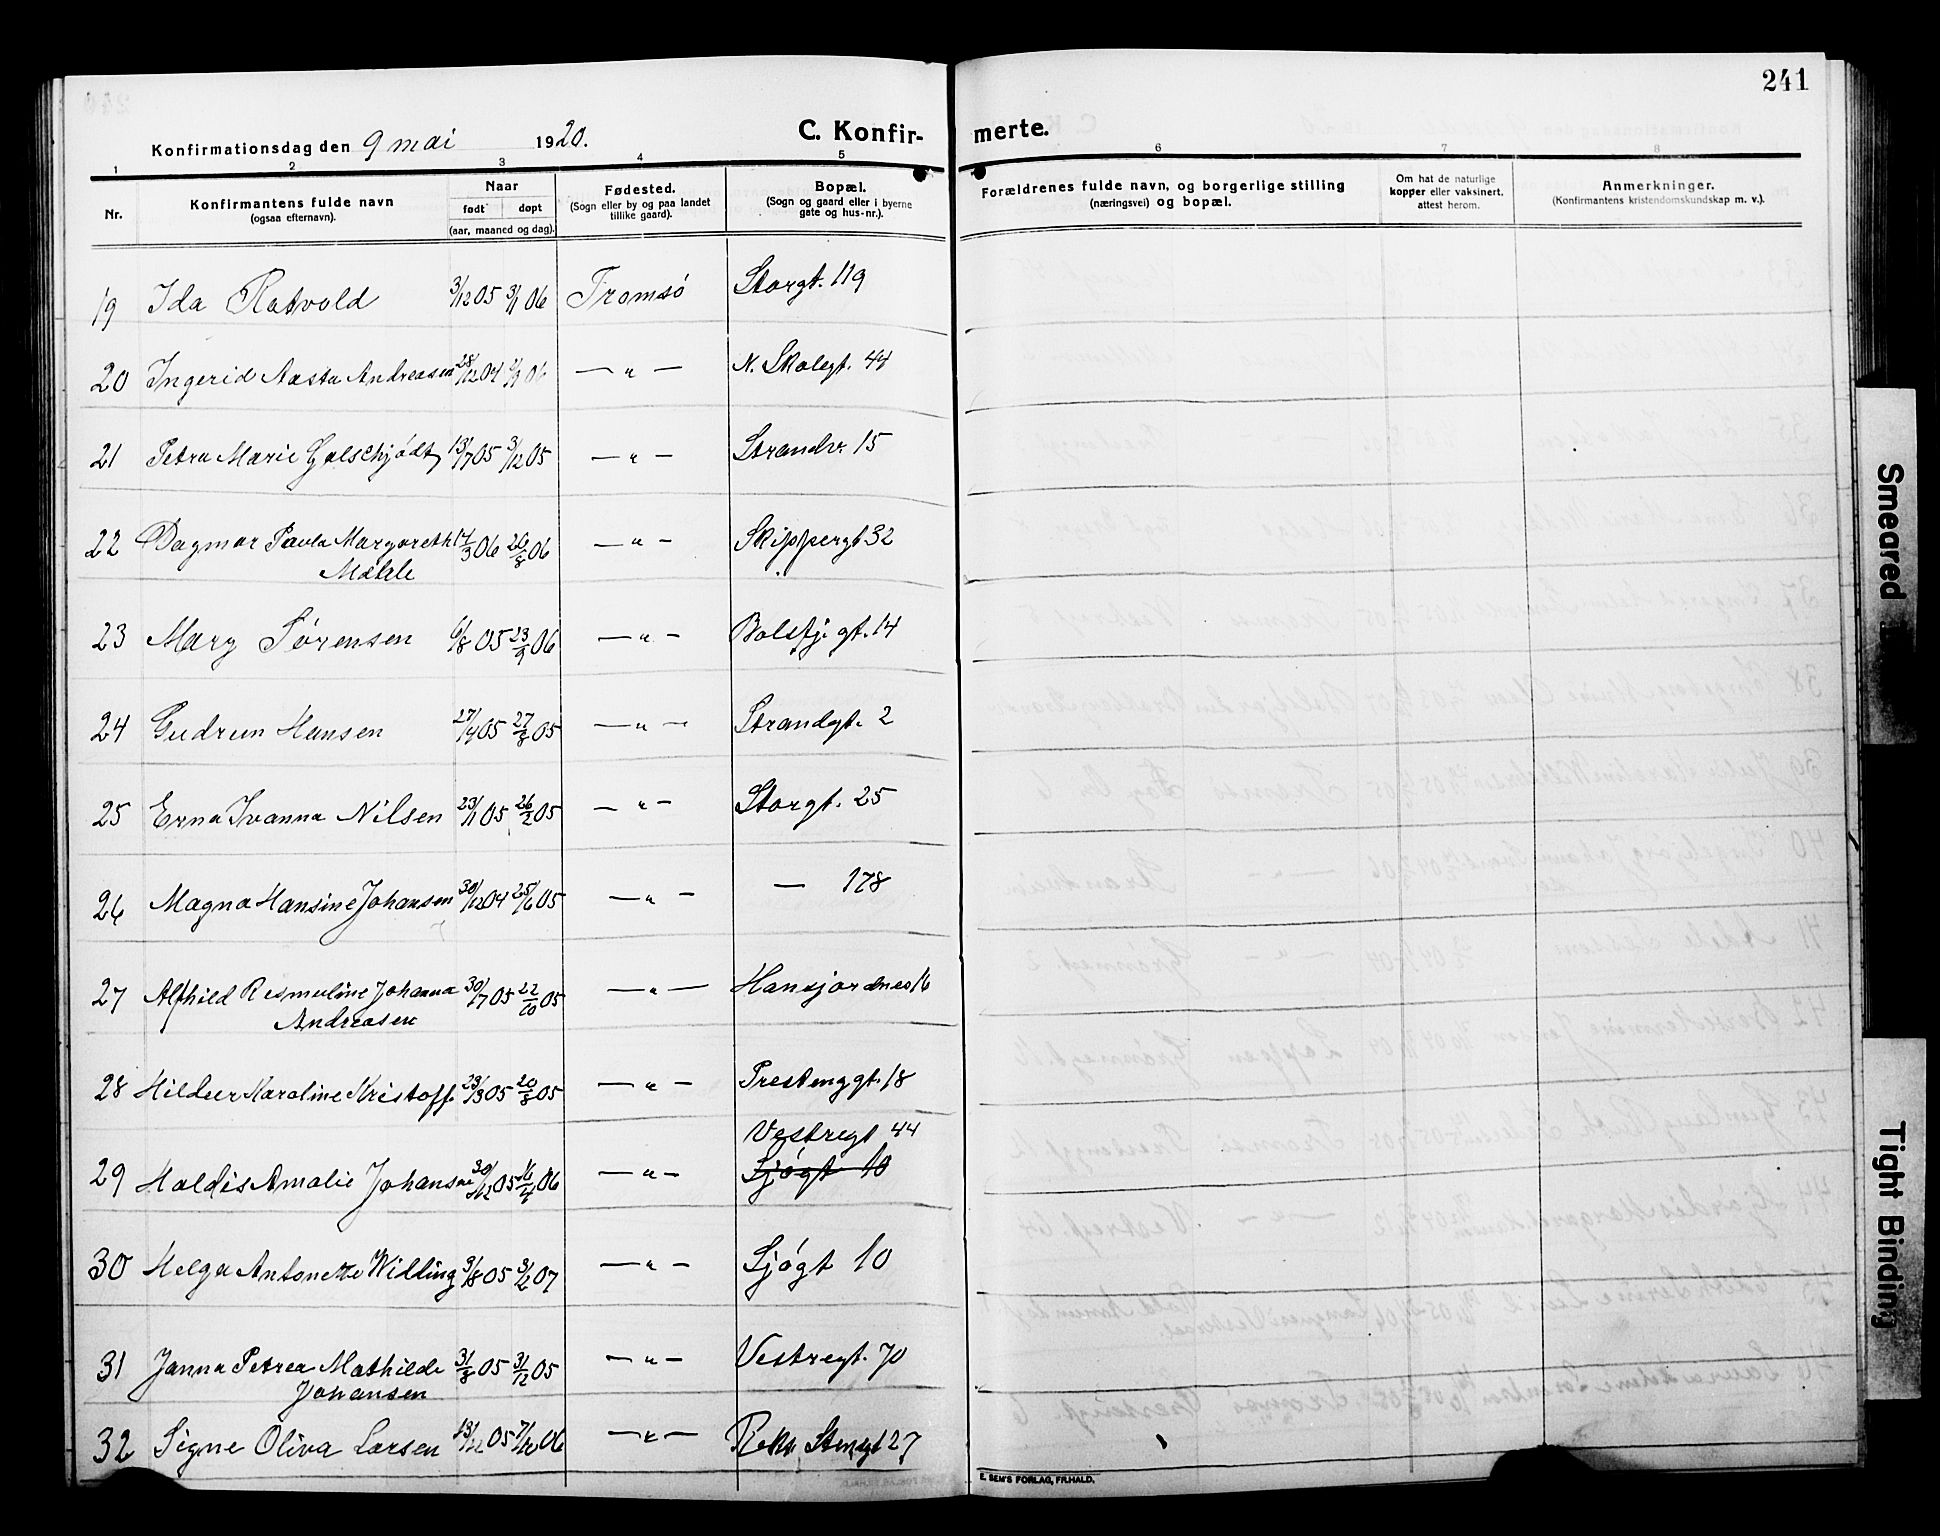 241
Konfirmationsdag den 9 mai 1920.
C. Konfir-
merte.
1 2 3 4 5 6 7 8
Nr.
Konfirmantens fulde navn
(ogsaa efternavn).
Naar
født døpt
(aar, maaned og dag).
Fødested.
(Sogn eller by og paa landet
tillike gaard).
Bopæl.
(Sogn og gaard eller i byerne
gate og hus-nr.).
Forældrenes fulde navn, og borgerlige stilling
(næringsvei) og bopæl.
Om hat de naturlige
kopper eller vaksinert.
attest herom.
Anmerkninger.
(Konfirmantens kristendomskundskap m. v.).
19 Ida Rotvold 3/12 05 3/1 06 Tromsö Storgt. 119
20 Ingerid Aasta Andreasen 28/12 04 06 — " — N. Skolegt. 44
21 Petra Marie Galschjödt 13/7 05 3/12 05 — " — Strandv. 15
22 Dagmar Paula Margareth 14/3 06 26/8 06 — " — Skippergt 32
Mæhle
23 Mary Sørensen 6/8 05 23/9 06 — " — Balsfj. gt. 14
24 Gudrun Hansen 27/4 05 27/8 05 — " — Strandgt. 2
25 Erna Ivanna Nilsen 23/1 05 26/2 05 — " — Storgt. 25
26 Magna Hansine Johansen 30/12 04 25/6 05 — " — — 178
27 Alfhild Rismuline Johanna 30/7 05 22/10 05 — " — Hansjordnes 16
Andreasen
28 Hildur Karoline Kristoff. 23/3 05 20/8 05 — " — Prestenggt. 18
Vestregt 44
29 Haldis Amalie Johansen 30/12 05 16/4 06 — " — Sjøgt 10
30 Helga Antonette Widting 3/8 05 3/12 07 — " — Sjøgt 10
31 Janna Petrea Mathilde 31/8 05 31/12 05 — " — Vestregt. 70
Johansen
32 Signe Oliva Larsen 13/12 05 7/10 06 — " — Rekt Stengt 27
E. SEM'S FORLAG, FR.HALD.
Smeared
Tight Binding